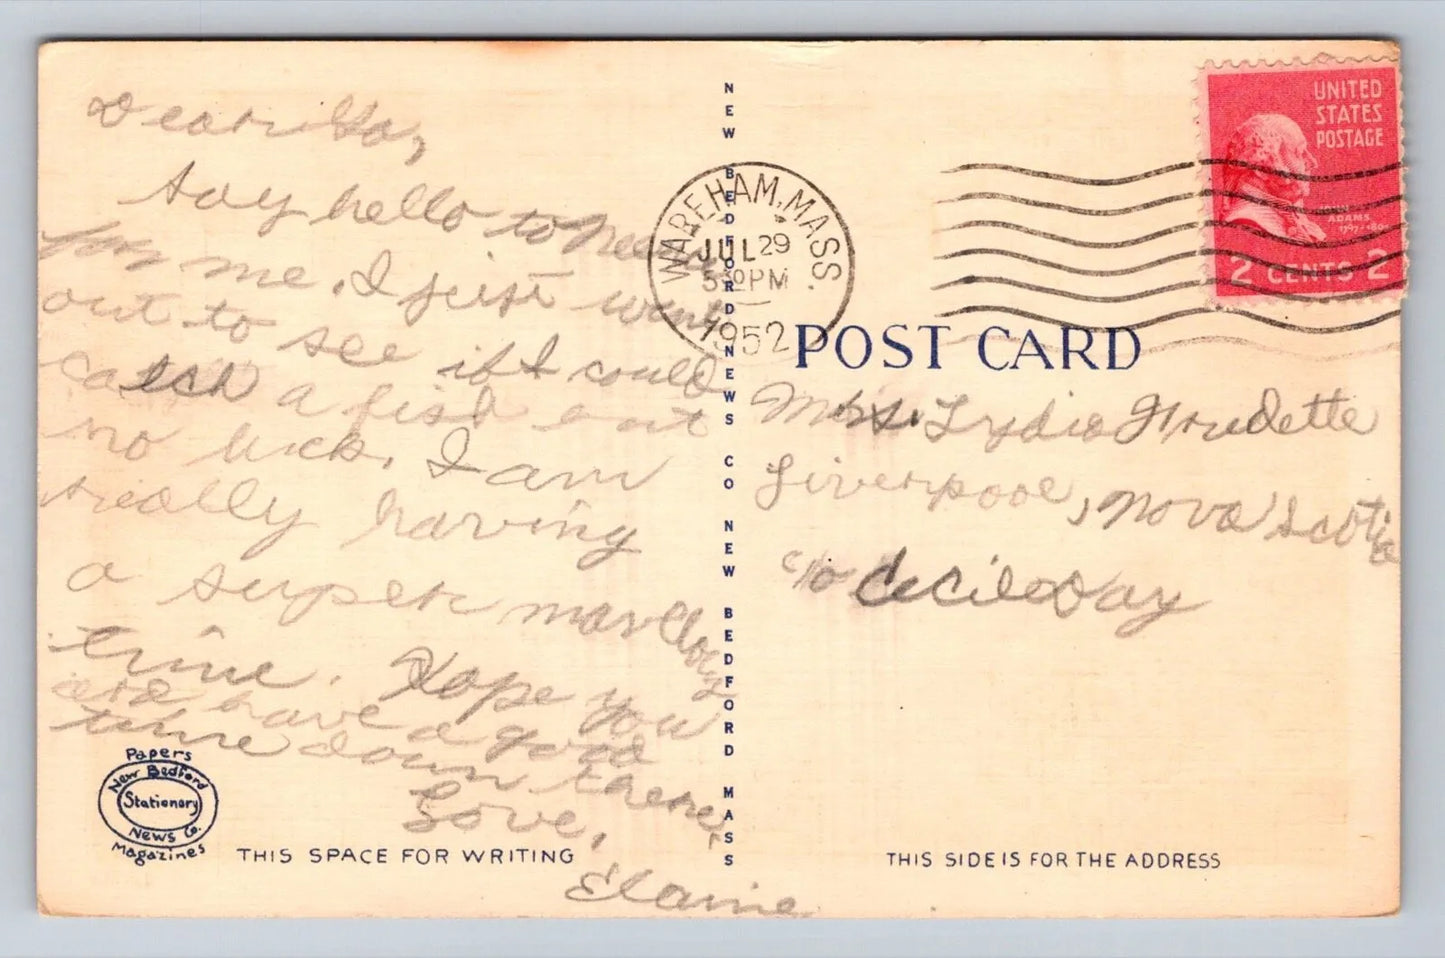 Dear
Say hello to
for me. I just went
out to see if I could
catch a fish but
no luck. I am
really having
a super
time. Hope you
and have a good
time down there.
Love,
Elaine
Papers
New Bedford
Stationery
News Co.
Magazines
THIS SPACE FOR WRITING
NEW BEDFORD NEWS CO NEW BEDFORD MASS
WAREHAM, MASS.
JUL 29
5 30 PM
1952
UNITED
STATES
POSTAGE
JOHN
ADAMS
2 CENTS 2
POST CARD
Mrs. Lydia
Liverpool, Nova Scotia
c/o Cecil Day
THIS SIDE IS FOR THE ADDRESS